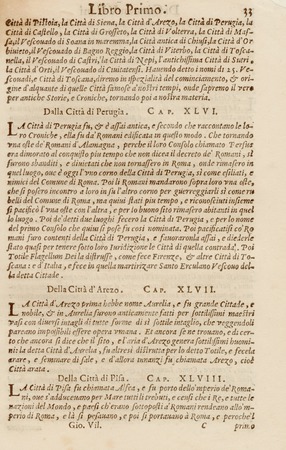 Libro Primo. 33
Città di Pistoia, la Città di Siena, la Città d'Arezo, la Città di Perugia, la
Città di Castello, la Città di Grosseto, la Città di Volterra, la Città di Mas-
sa, il Vescovado di Soana in maremma, la Città antica di Chiusi, la Città d'Or-
bivieto, il Vescovado di Bagno Reggio, la Città di Viterbo, la Città di Tosca-
nella, il Vescovado di Castri, la Città di Nepi, l'antichissima Città di Sutri,
la Città d'Orti, il Vescovado di Civitatensi. Havendo detto i nomi di 25. Ve-
scovadi, e Città di Toscana, diremo in specialità del cominciamento, & ori-
gine d'alquante di quelle Città famose a' nostri tempi, onde sapremo il vero
per antiche Storie, e Croniche, tornando poi a nostra materia.
Dalla Città di Perugia. CAP. XLVI.
LA Città di Perugia fu, & è assai antica, e secondo che raccontano le lo-
ro Croniche, ella fu da' Romani edificata in questo modo. Che tornando
una oste de' Romani d'Alamagna, perche il loro Consolo chiamato Persus
era dimorato al conquisto più tempo che non dicea il decreto de' Romani, sì
furono sbanditi, e dimettati che non tornassero in Roma, onde rimasero in
quel luogo, ove è oggi l'uno corno della Città di Perugia, sì come esiliati, e
nimici del Comune di Roma. Poi li Romani mandarono sopra loro una oste,
che si posero incontro a loro in su l'altro corno per guerreggiarli sì come ri-
belli del Comune di Roma, ma quivi stati più tempo, e riconosciuti insieme
si pacificò l'una oste con l'altra, e per lo buono sito rimasero abitanti in quel
lo luogo. Poi de' detti due luoghi fecero la Città di Perugia, e per lo nome
del primo Consolo che quivi si pose fu così nominata. Poi pacificati co' Ro
mani furo contenti della Città di Perugia, e favorarolla assai, e diedesi in
stato quasi per tenere sotto loro Iuridizione le Città di quella contrada. Poi
Totile Flagellum Dei la distrusse, come fece Firenze, & altre Città di To-
scana: e d'Italia, e fece in quella martirizare Santo Erculano Vescovo del-
la detta Cittade.
Della Città d'Arezo. CAP. XLVII.
LA Città d'Arezo prima hebbe nome Aurelia, e fu grande Cittade, e
nobile, & in Aurelia furono anticamente fatti per sottilissimi maestri
vasi con diversi intagli di tutte forme di sì sottile intaglio, che veggendoli
pareano impossibili essere opera umana. Et ancora se ne trovano, e di cer-
to che ancora si dice che il sito, e l'aria d'Arezo genera sottilissimi huomi-
ni: la detta Città d'Aurelia, fu altresì distrutta per lo detto Totile, e fecela
arare, e seminare di sale, e d'allora innanzi fu chiamata Arezo, cioè
Città arata.
Della Città di Pisa. CAP. XLVIII.
LA Città di Pisa fu chiamata Alfea, e fu porto dello'mperio de' Roma-
ni, ove s'adducevano per Mare tutti i trebuti, e censi che i Re, e tutte le
nazioni del Mondo, e paesi ch'erano sottoposti a' Romani rendeano allo'm-
perio di Roma, e là si pesavano, e poi si portavano à Roma, e perche'l
Gio. Vil. C primo